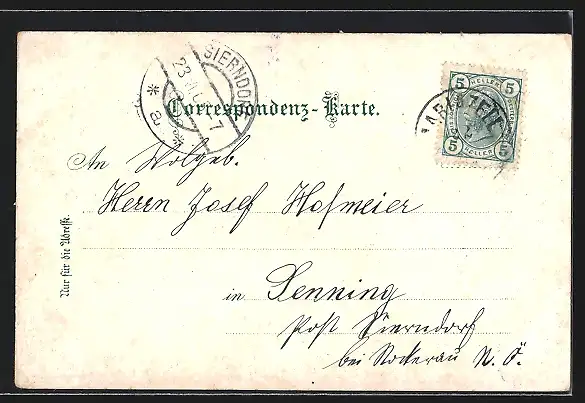 SIERNDO
23
7
* a *
Correspondenz-Karte.
5 HELLER 5
5 HELLER 5
An Wolgeb.
Herrn Josef Hofmeier
in Senning
Post Sierndorf
bei Stockerau N. Ö.
Nur für die Adresse.